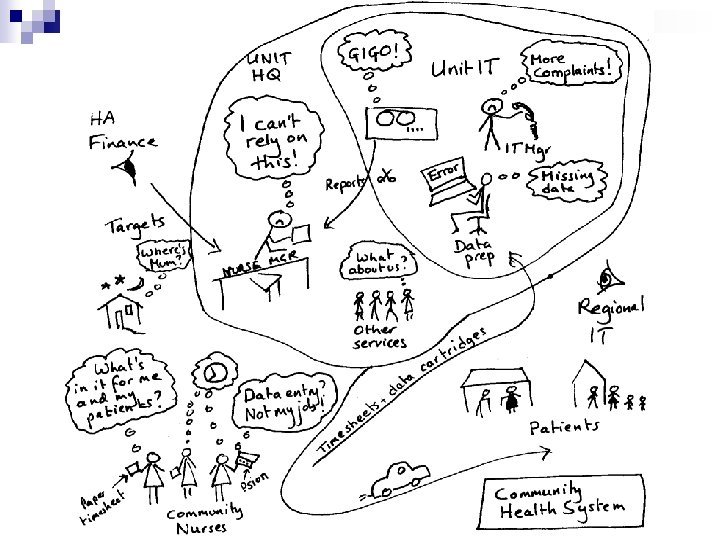 UNIT
HQ
GIGO!
Unit IT
More
Complaints!
HA
Finance
I can't
rely on
this!
IT Mgr
Reports
Error
Missing
data
Targets
Where's
Mum?
NURSE MGR
What
about us?
Data
prep
Other
services
Regional
IT
What's
in it for me
and my
patients?
Data entry?
Not my job!
Timesheets + data cartridges
Patients
Paper
timesheet
Psion
Community
Nurses
Community
Health System